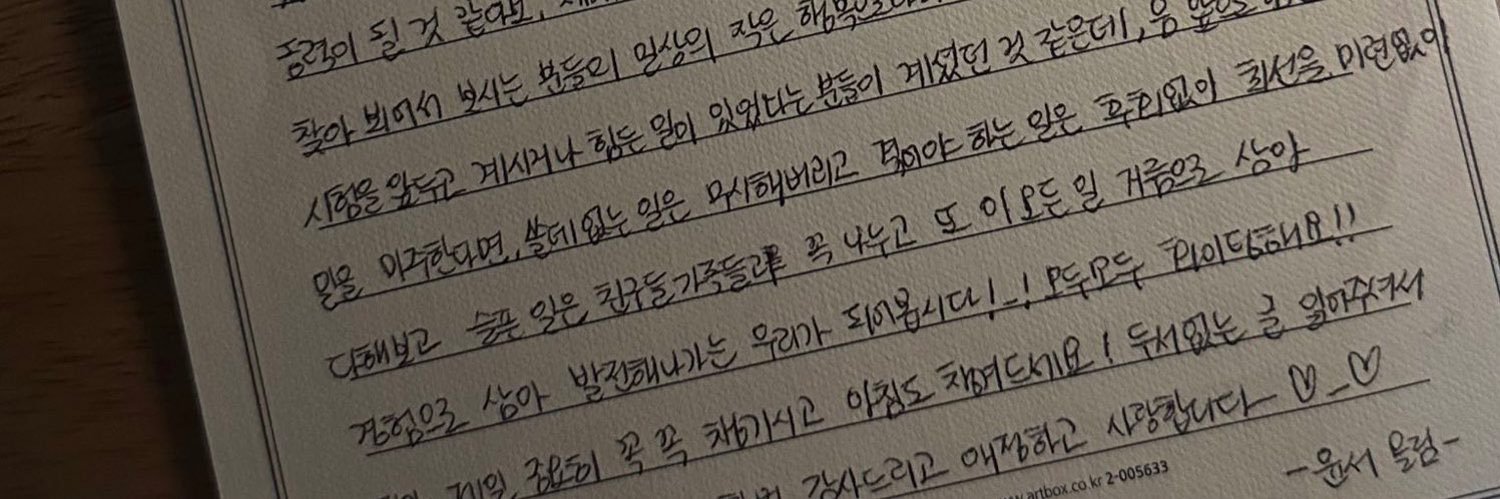 동력이 될 것 같아요,
찾아 뵈어서 보시는 분들의 일상의 작은 행복으로
시험을 앞두고 계시거나 힘든 일이 있었다는 분들이 계셨던 것 같은데, 음 앞으로
일을 마주한다면, 쓸데없는 일은 무시해버리고 겪어야 하는 일은 후회없이 최선을 미련없이
다해보고 슬픈 일은 친구들가족들과 꼭 나누고 또 이 모든 일 거름으로 삼아
경험으로 삼아 발전해나가는 우리가 되어봅시다!_! 모두모두 화이팅해요!!
제일 중요히 꼭 꼭 챙기시고 아침도 챙겨드세요! 두서없는 글 읽어주셔서
감사드리고 애정하고 사랑합니다 ♡_♡
-윤서 올림-
artbox.co.kr 2-005633